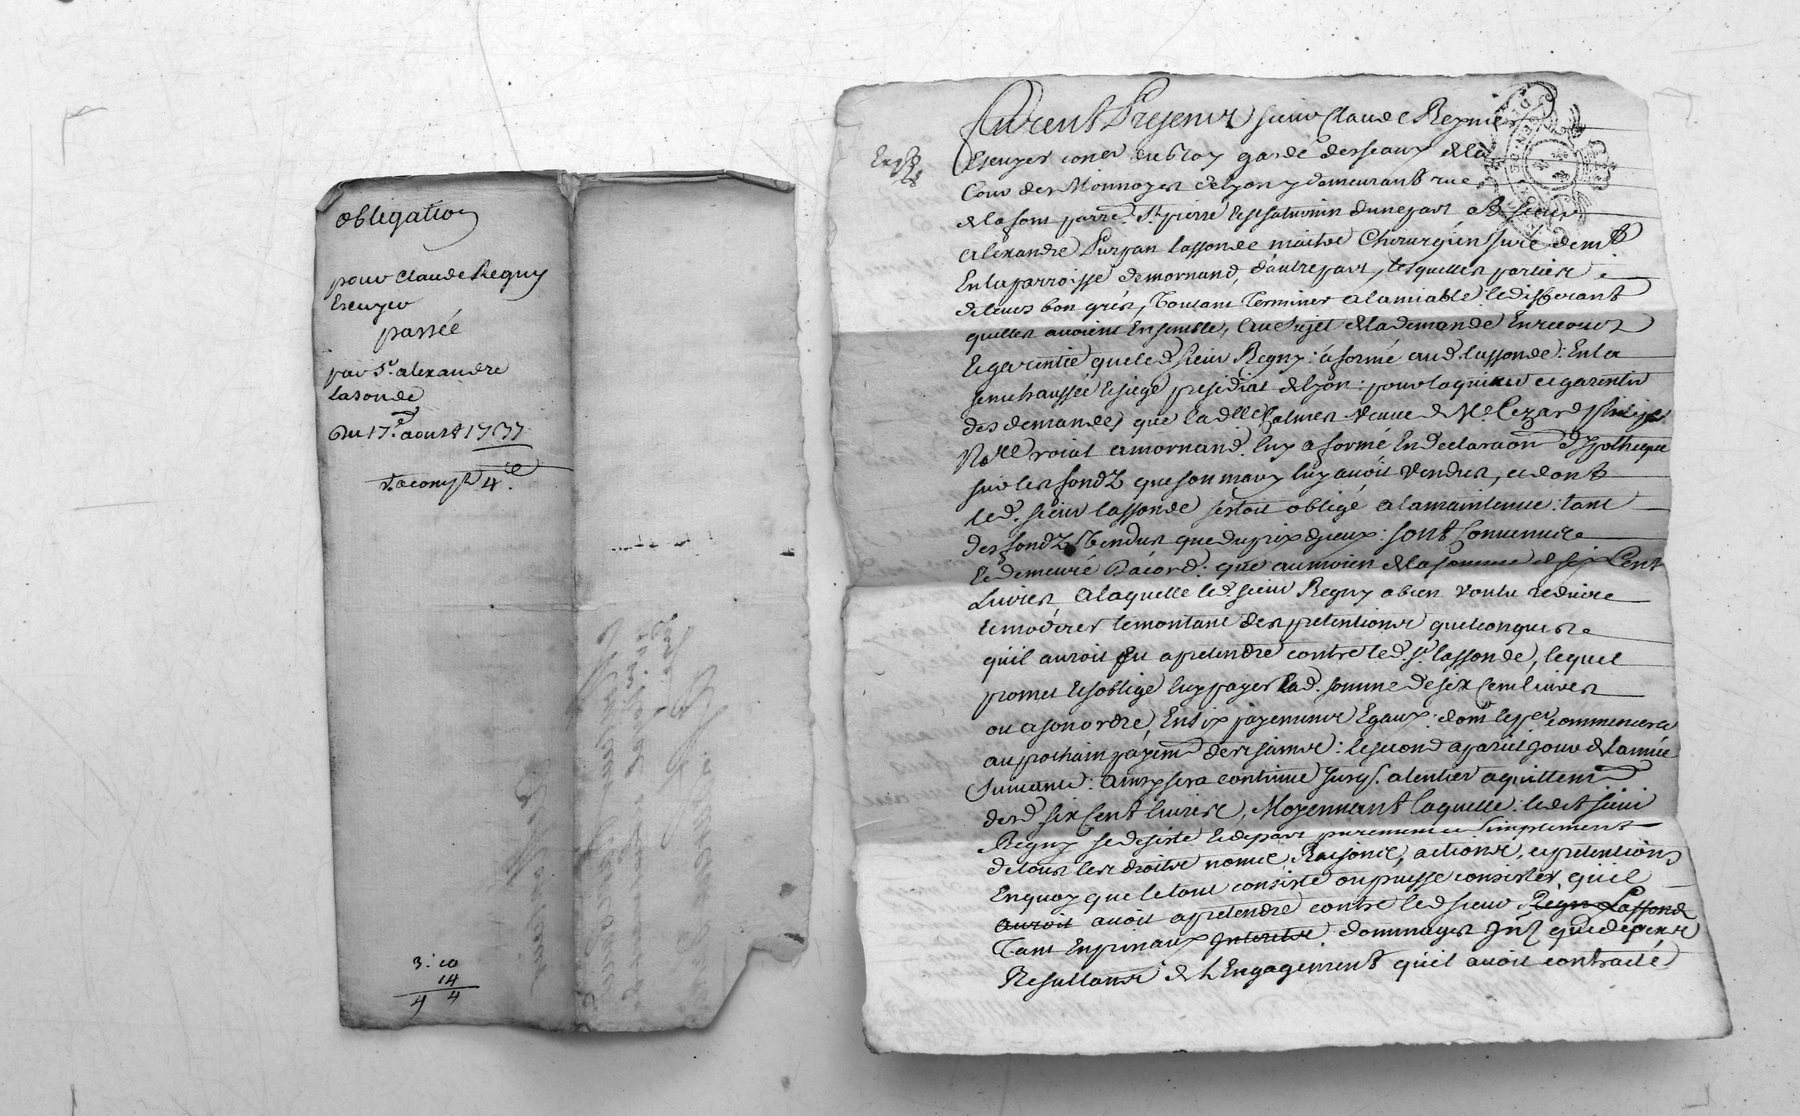 obligation
pour Claude Regny
Escuyer
passée
par Sr. alexandre
Lasonde
Du 17e. aoust 1777
4
3: 10
14
4 4
furent Presents sieur Claude Reynier
Escuyer coner du Roy garde des seaux de la
Cour des Monnoyes de Lyon y demeurant rue
de la font parre. St. pierre et St saturnin d'une part Et sieur
Alexandre Purpan lassonde maitre Chirurgien juré demt
En la parroisse de mornand, d'autre part, lesquelles parties
de leurs bon grés, voulant Terminer a lamiable le differant
quelles avoient Ensemble, au sujet de la demande En recours
Et garentie que le d. sieur Regny: a formé au d. lassonde: En la
senechaussée et siege presidial de Lyon: pour la garentir
des demandes que la dlle Chalmer veuve de Me. Cezard philipe
Nore roial a mornand luy a formé En declaraon d'hypotheque
sur les fondz que son mary luy avoit vendus, et dont
le d. sieur lassonde sestoit obligé a la maintenue: tant
des fondz vendus que du prix dyceux: sont Convenus
Et demeuré D'acord: que au moien de la somme de six Cent
Livres a laquelle le d. sieur Regny a bien voulu reduire
Et moderer le montant des pretentions quelconques
qu'il auroit pu a pretendre contre le d. sr. lassonde, lequel
promet et s'oblige luy payer la d. somme de six cent livres
ou a son ordre, En six payements Egaux: dont le per commencera
au prochain payemt des saints: le second a pareil jour de l'année
suivante: ainsy sera continué jusqs. a l'entier aquittemt
des d. six Cent livres, Moyennant laquelle: ledit sieur
Regny se desiste et depart purement et simplement
de tous les droits noms, Raisons, actions, et pretentions
En quoy que le tout consiste ou puisse consister, qu'il
auroit avoit a pretendre contre le d sieur Regny Lassonde
Tant En principaux Interets dommages Jnt que depens
Resultants de L'Engagement qu'il avoit contracté